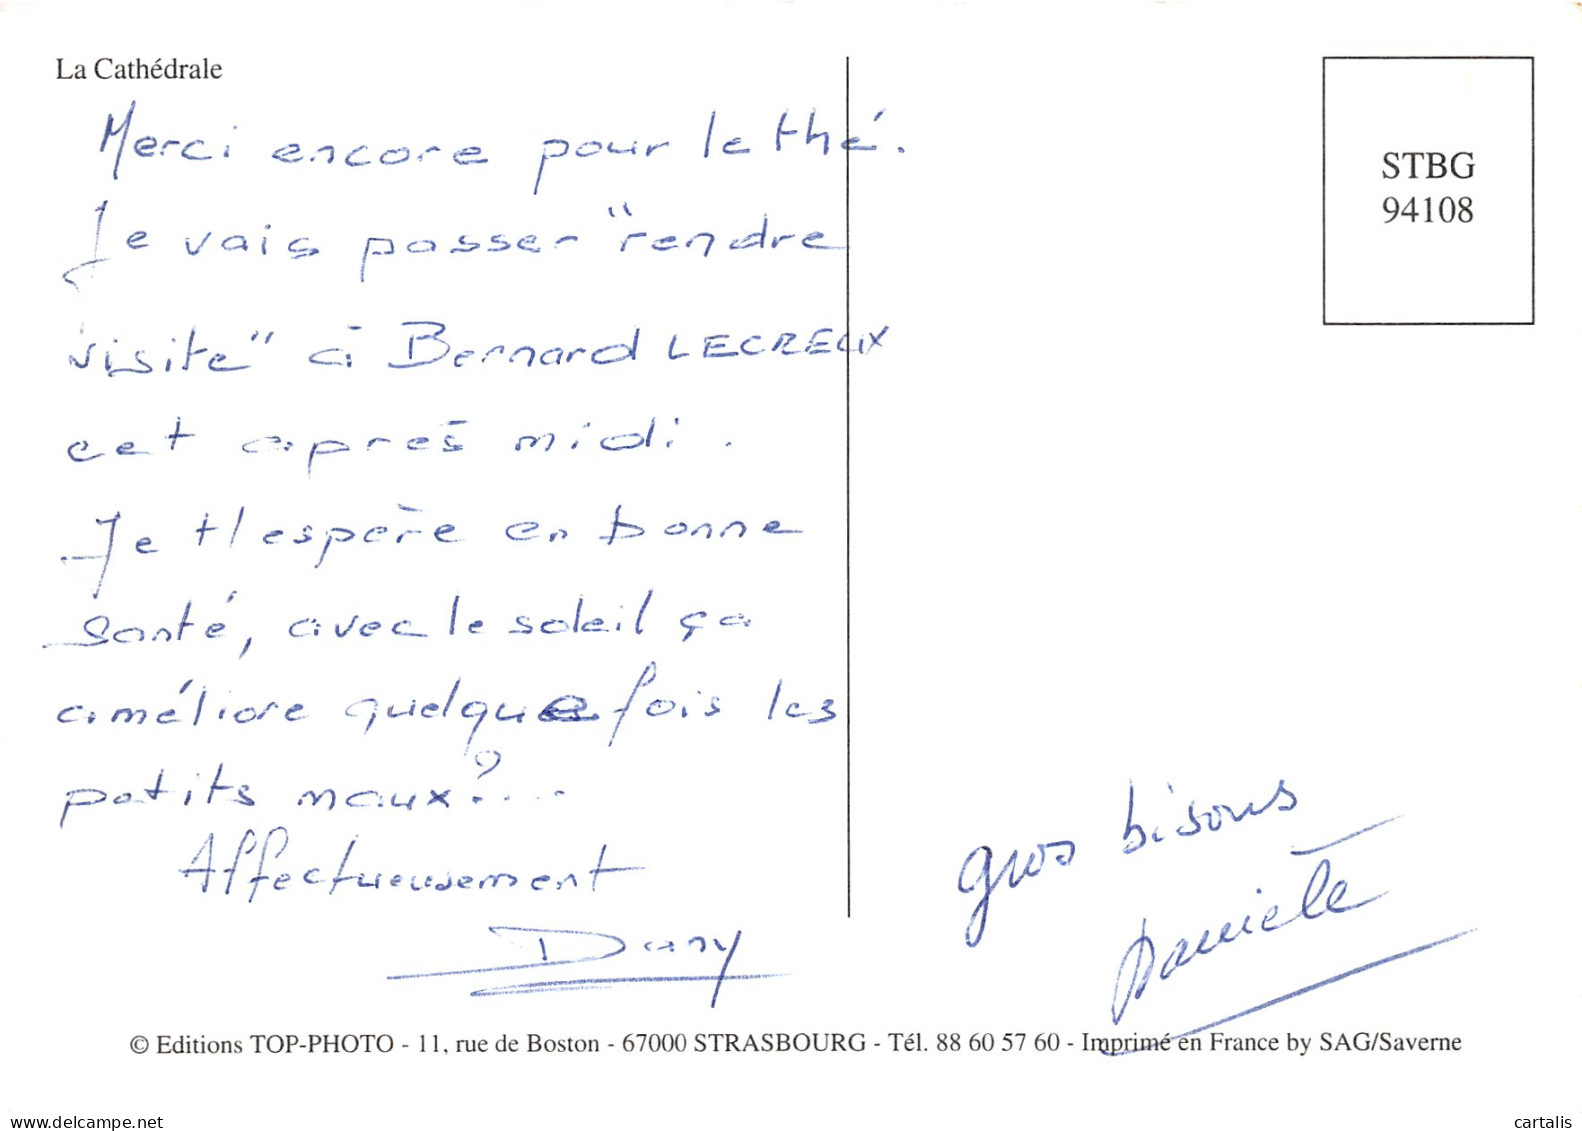 La Cathédrale
Merci encore pour le thé.
Je vais passer "rendre
visite" à Bernard LECREUX
cet après midi.
Je t'espère en bonne
santé, avec le soleil ça
améliore quelque fois les
petits maux?...
Affectueusement
Dany
STBG
94108
gros bisous
Danièle
© Editions TOP-PHOTO - 11, rue de Boston - 67000 STRASBOURG - Tél. 88 60 57 60 - Imprimé en France by SAG/Saverne
www.delcampe.net
cartalis